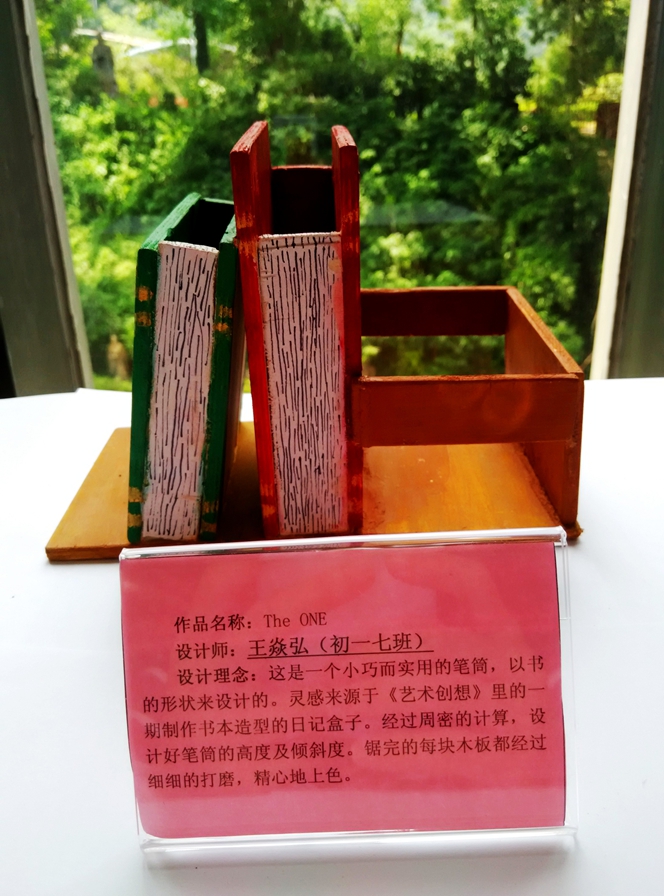 作品名称：The ONE
设计师：王焱弘（初一七班）
设计理念：这是一个小巧而实用的笔筒，以书
的形状来设计的。灵感来源于《艺术创想》里的一
期制作书本造型的日记盒子。经过周密的计算，设
计好笔筒的高度及倾斜度。锯完的每块木板都经过
细细的打磨，精心地上色。